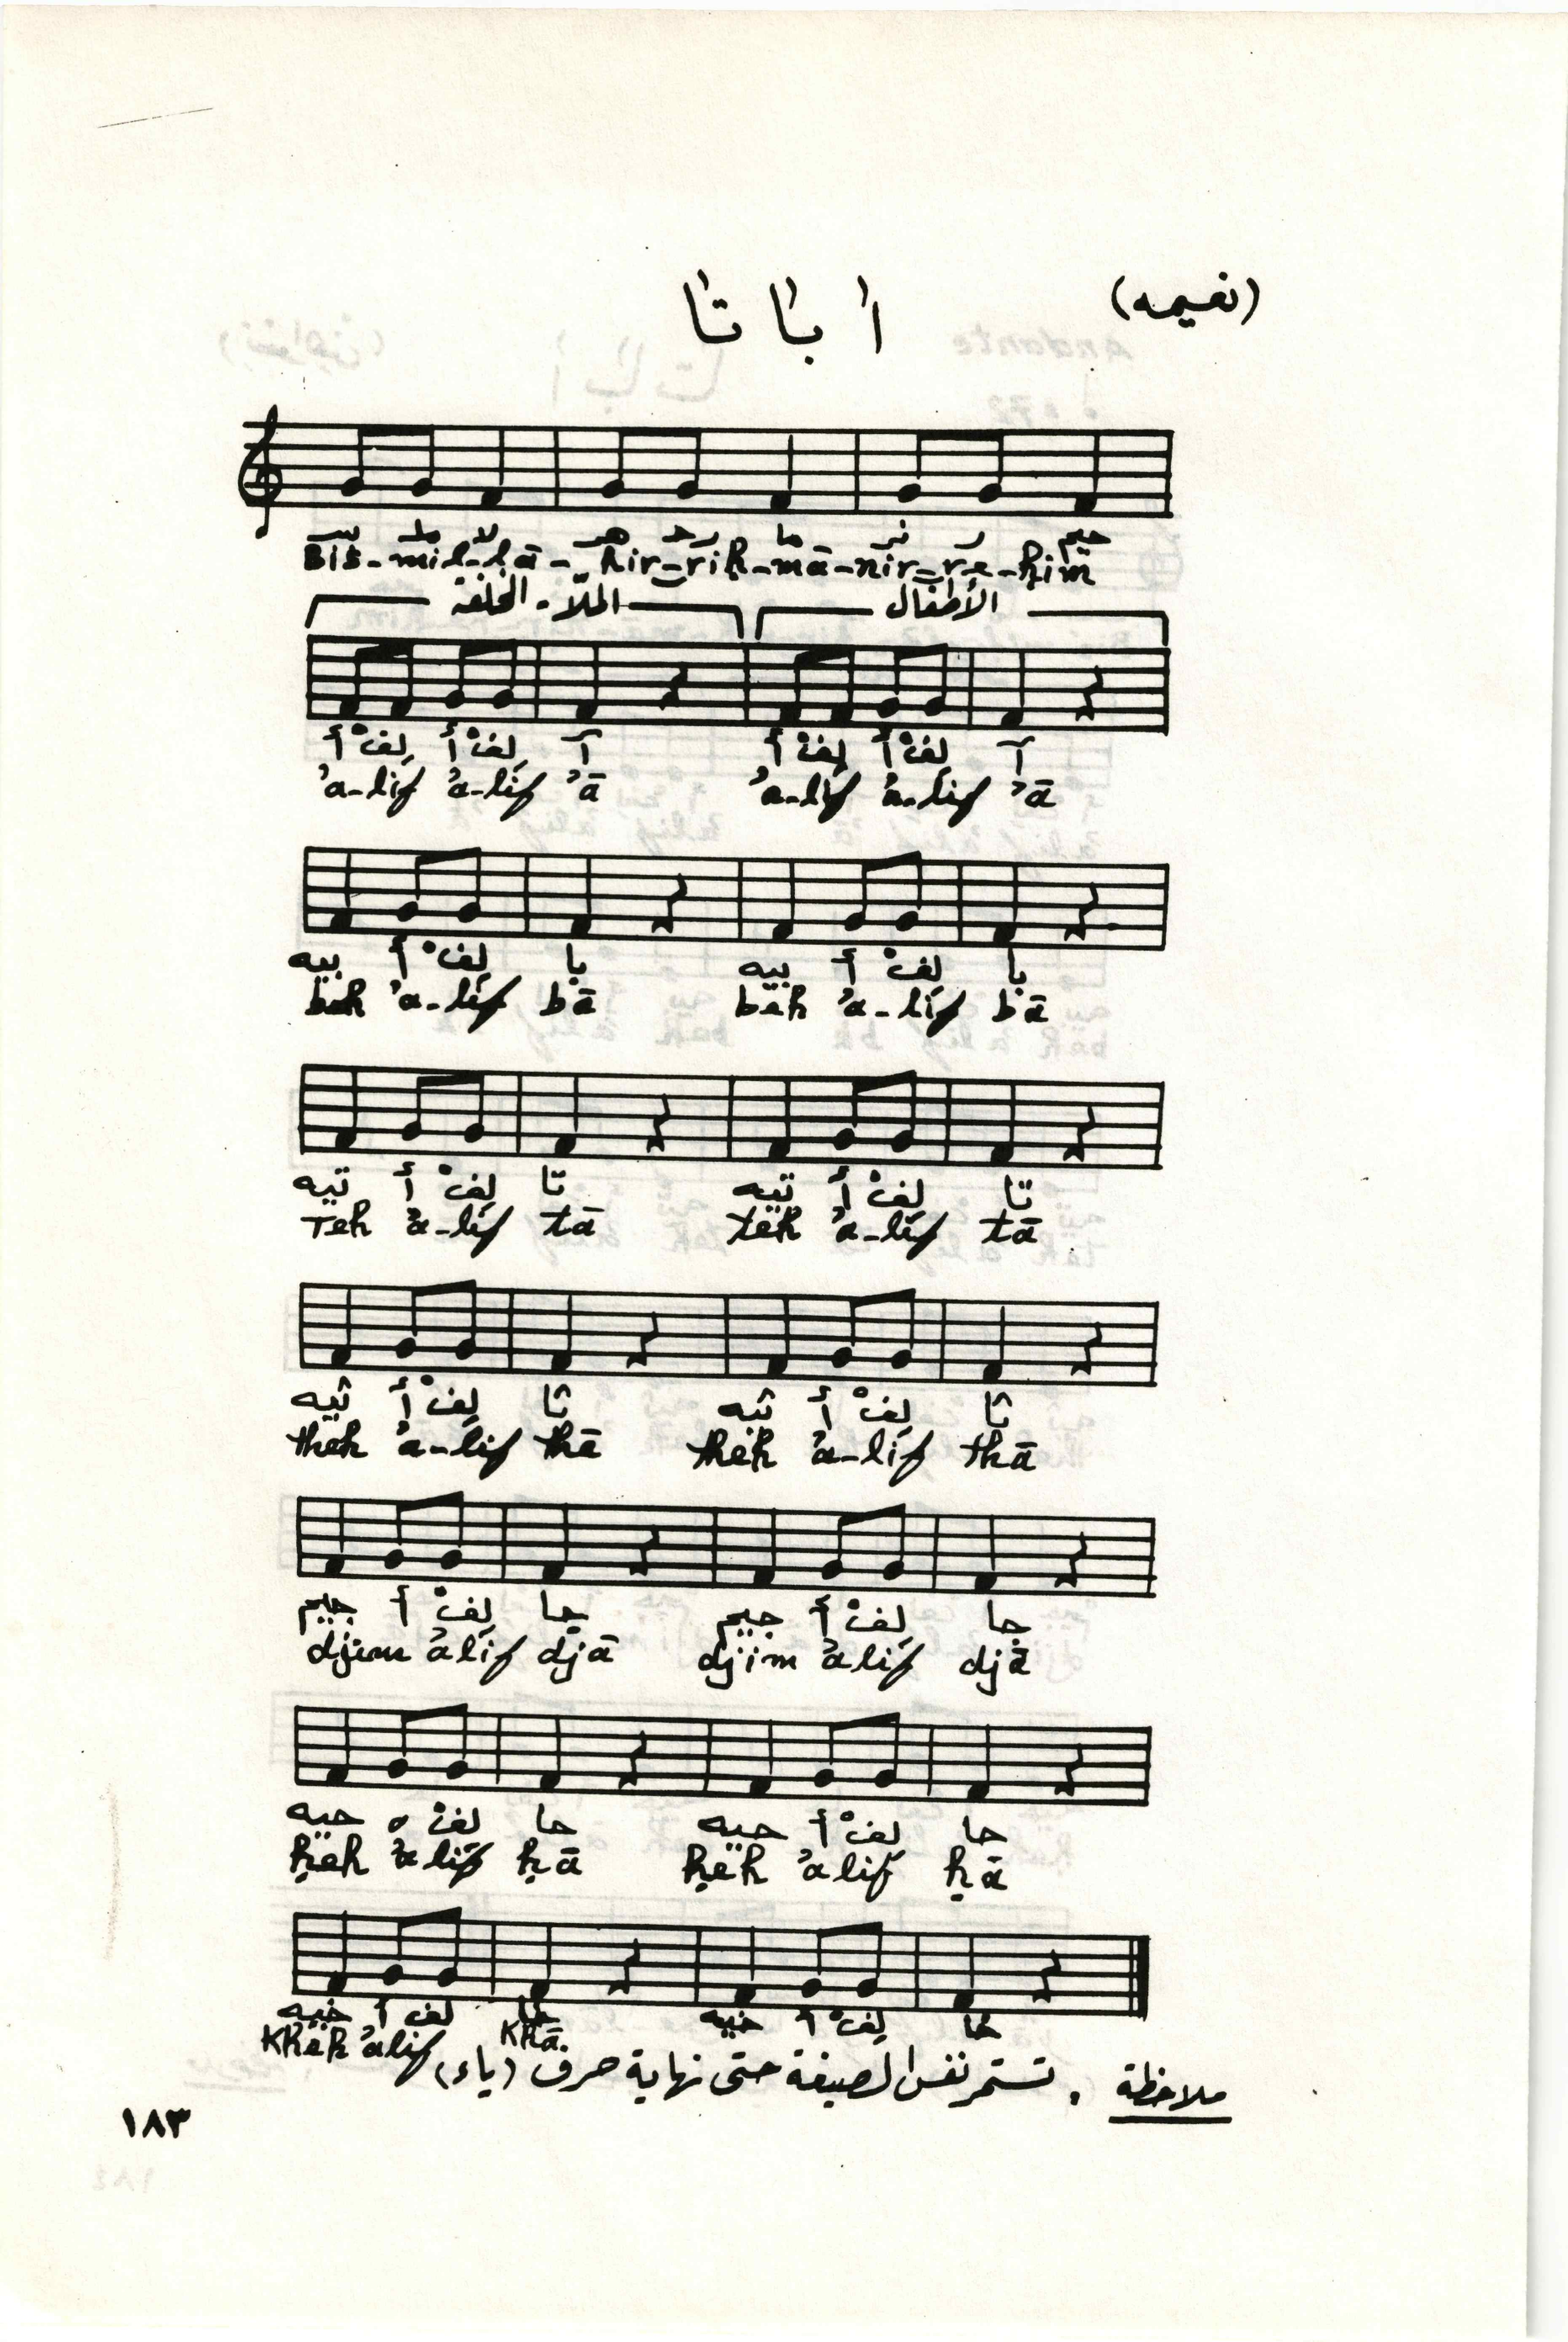 (نعيمه)
ا با تا
بسـ ملـ لا هر رحـ ما نر ر حيم
Bis-mil-lā-hir-riḥ-mā-nir-re-ḥim
الملّا - الخلفة الأطفال
أ لِفْ أ لِفْ آ أ لِفْ أ لِفْ آ
'a-lif 'a-lif 'ā 'a-lif 'a-lif 'ā
بيه أ لِفْ با بيه أ لِفْ با
beh 'a-lif bā beh 'a-lif bā
تيه أ لِفْ تا تيه أ لِفْ تا
Teh 'a-lif tā teh 'a-lif tā
ثيه أ لِفْ ثا ثيه أ لِفْ ثا
theh 'a-lif thā theh 'a-lif thā
جيم أ لِفْ جا جيم أ لِفْ جا
djim 'alif djā djim 'alif djā
حيه لفْ حا حيه أ لِفْ حا
ḥeh 'alif ḥā ḥeh 'alif ḥā
خيه أ لف خا خيه أ لِفْ خا
Kheh 'alif Khā
ملاحظة . تستمر نفس الصيغة حتى نهاية حرف (ياء)
١٨٣